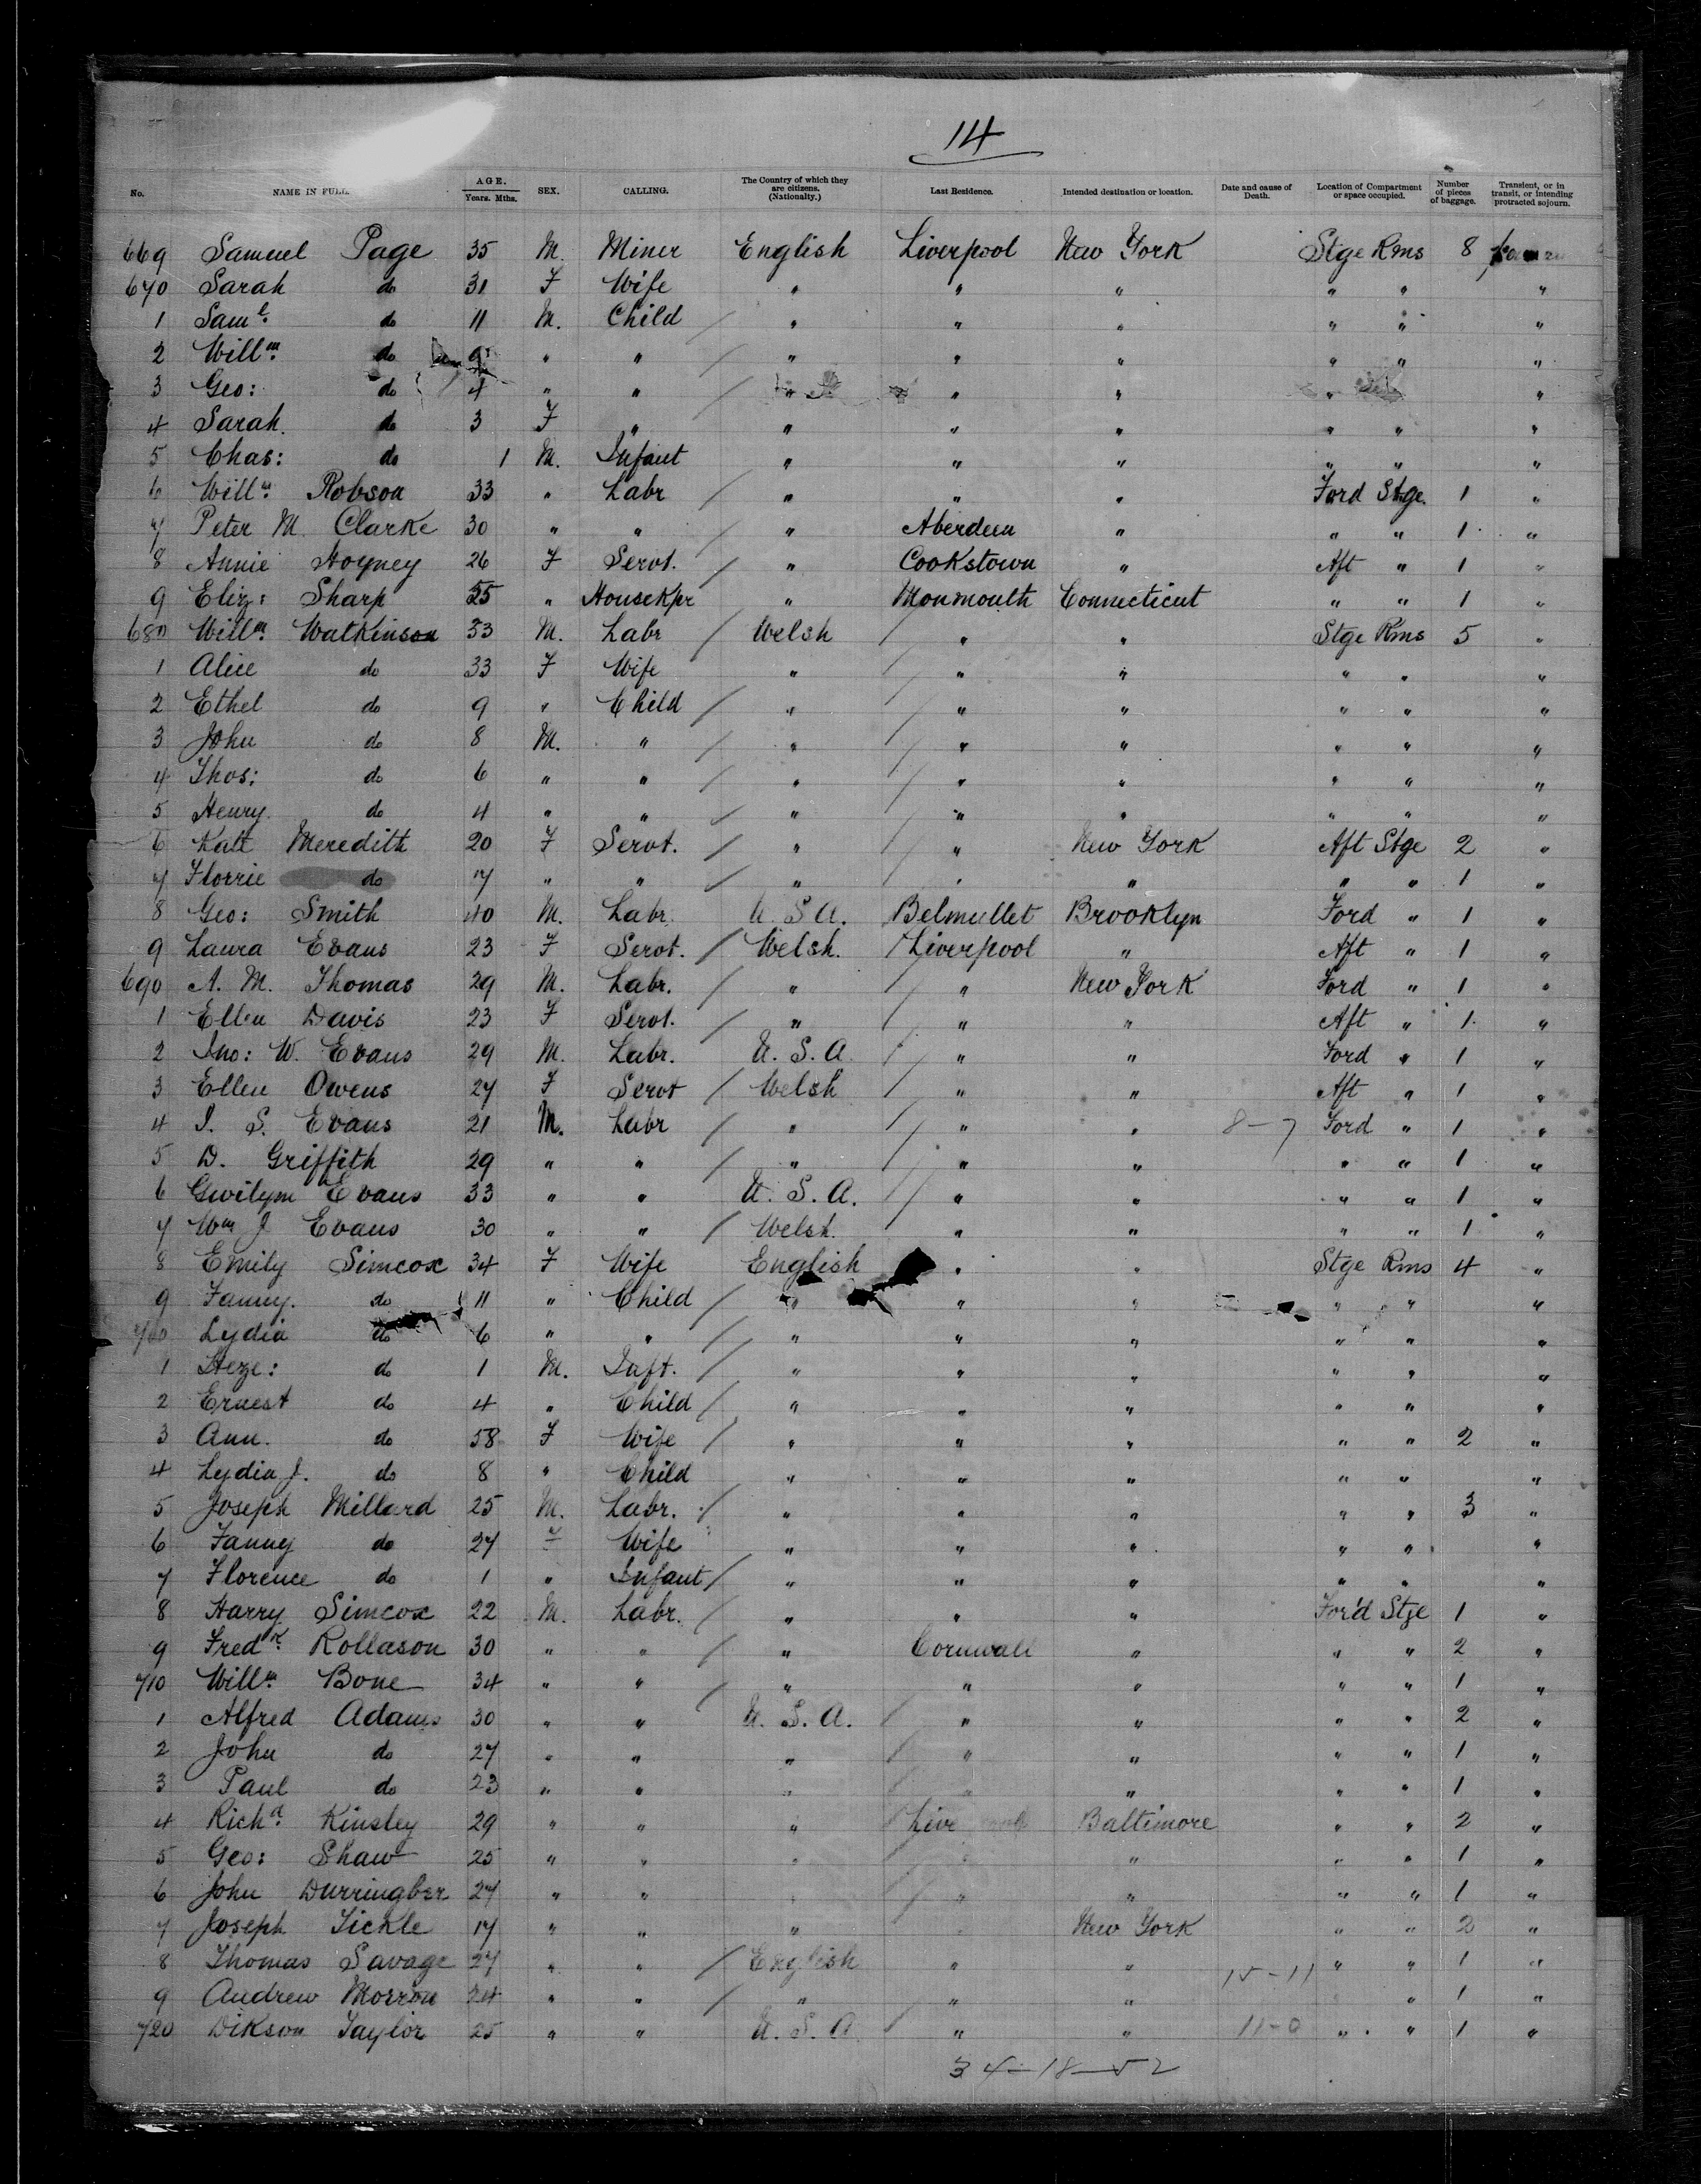 14
No. NAME IN FULL. AGE. Years. Mths. SEX. CALLING. The Country of which they are citizens. (Nationality.) Last Residence. Intended destination or location. Date and cause of Death. Location of Compartment or space occupied. Number of pieces of baggage. Transient, or in transit, or intending protracted sojourn.
669 Samuel Page 35 M. Miner English Liverpool New York Stge Rms 8
670 Sarah do 31 F Wife " " " " " "
1 Saml. do 11 M. Child / " " " " " "
2 Willm. do 9 " " / " " " " " "
3 Geo: do 4 " " / " " " " "
4 Sarah. do 3 F " " " " " " "
5 Chas: do 1 M. Infant " " " " " "
6 Willm. Robson 33 " Labr / " " " Ford Stge. 1 "
7 Peter M. Clarke 30 " " / " Aberdeen " " " 1 "
8 Annie Hoyney 26 F Servt. / " Cookstown " Aft " 1 "
9 Eliz: Sharp 55 " HouseKpr " Monmouth Connecticut " " 1 "
680 Willm. Watkinson 33 M. Labr / Welsh / " " Stge Rms 5 "
1 Alice do 33 F Wife " / " " " " "
2 Ethel do 9 " Child / " / " " " " "
3 John do 8 M. " / " / " " " " "
4 Thos: do 6 " " / " / " " " " "
5 Henry. do 4 " " / " / " " " " "
6 Kate Meredith 20 F Servt. / " / " New York Aft Stge 2 "
7 Florrie do 17 " " / " / " " " " 1 "
8 Geo: Smith 40 M. Labr. U. S. A. Belmullet Brooklyn Ford " 1 "
9 Laura Evans 23 F Servt. / Welsh. / Liverpool " Aft " 1 "
690 A. M. Thomas 29 M. Labr. / " / " New York Ford " 1 "
1 Ellen Davis 23 F Servt. / " / " " Aft " 1 "
2 Jno: W. Evans 29 M. Labr. U. S. A. / " " Ford " 1 "
3 Ellen Owens 27 F Servt / Welsh / " " Aft " 1 "
4 J. S. Evans 21 M. Labr / " / " " 8-7 Ford " 1 "
5 D. Griffith 29 " " / " / " " " " 1 "
6 Gwilym Evans 33 " " U. S. A. / " " " " 1 "
7 Wm J Evans 30 " " / Welsh. " " " " 1 "
8 Emily Simcox 34 F Wife English " " Stge Rms 4 "
9 Fanny. do 11 " Child / " " " " " "
700 Lydia do 6 " " / " " " " " "
1 Heze: do 1 M. Inft. / " " " " " "
2 Ernest do 4 " Child / " " " " " "
3 Ann. do 58 F Wife / " " " " " 2 "
4 Lydia J. do 8 " Child " " " " " "
5 Joseph Millard 25 M. Labr. / " " " " " 3 "
6 Fanny do 27 F Wife " " " " " "
7 Florence do 1 " Infant / " " " " " "
8 Harry Simcox 22 M. Labr. / " " " For'd Stge 1 "
9 Fredk. Rollason 30 " " / " Cornwall " " " 2 "
710 Willm. Bone 34 " " / " " " " " 1 "
1 Alfred Adams 30 " " U. S. A. / " " " " 2 "
2 John do 27 " " " / " " " " 1 "
3 Paul do 23 " " " / " " " " 1 "
4 Richd. Kinsley 29 " " " / Baltimore " " 2 "
5 Geo: Shaw 25 " " " / " " " " 1 "
6 John Durringber 27 " " / " " " " 1 "
7 Joseph Tickle 17 " " " New York " " 2 "
8 Thomas Savage 27 " " / English " " 15-11 " " 1 "
9 Andrew Morrow 24 " " / " / " " " 1 "
720 Dikson Taylor 25 " " U. S. A. " " 11-0 " " 1 "
34-18-52